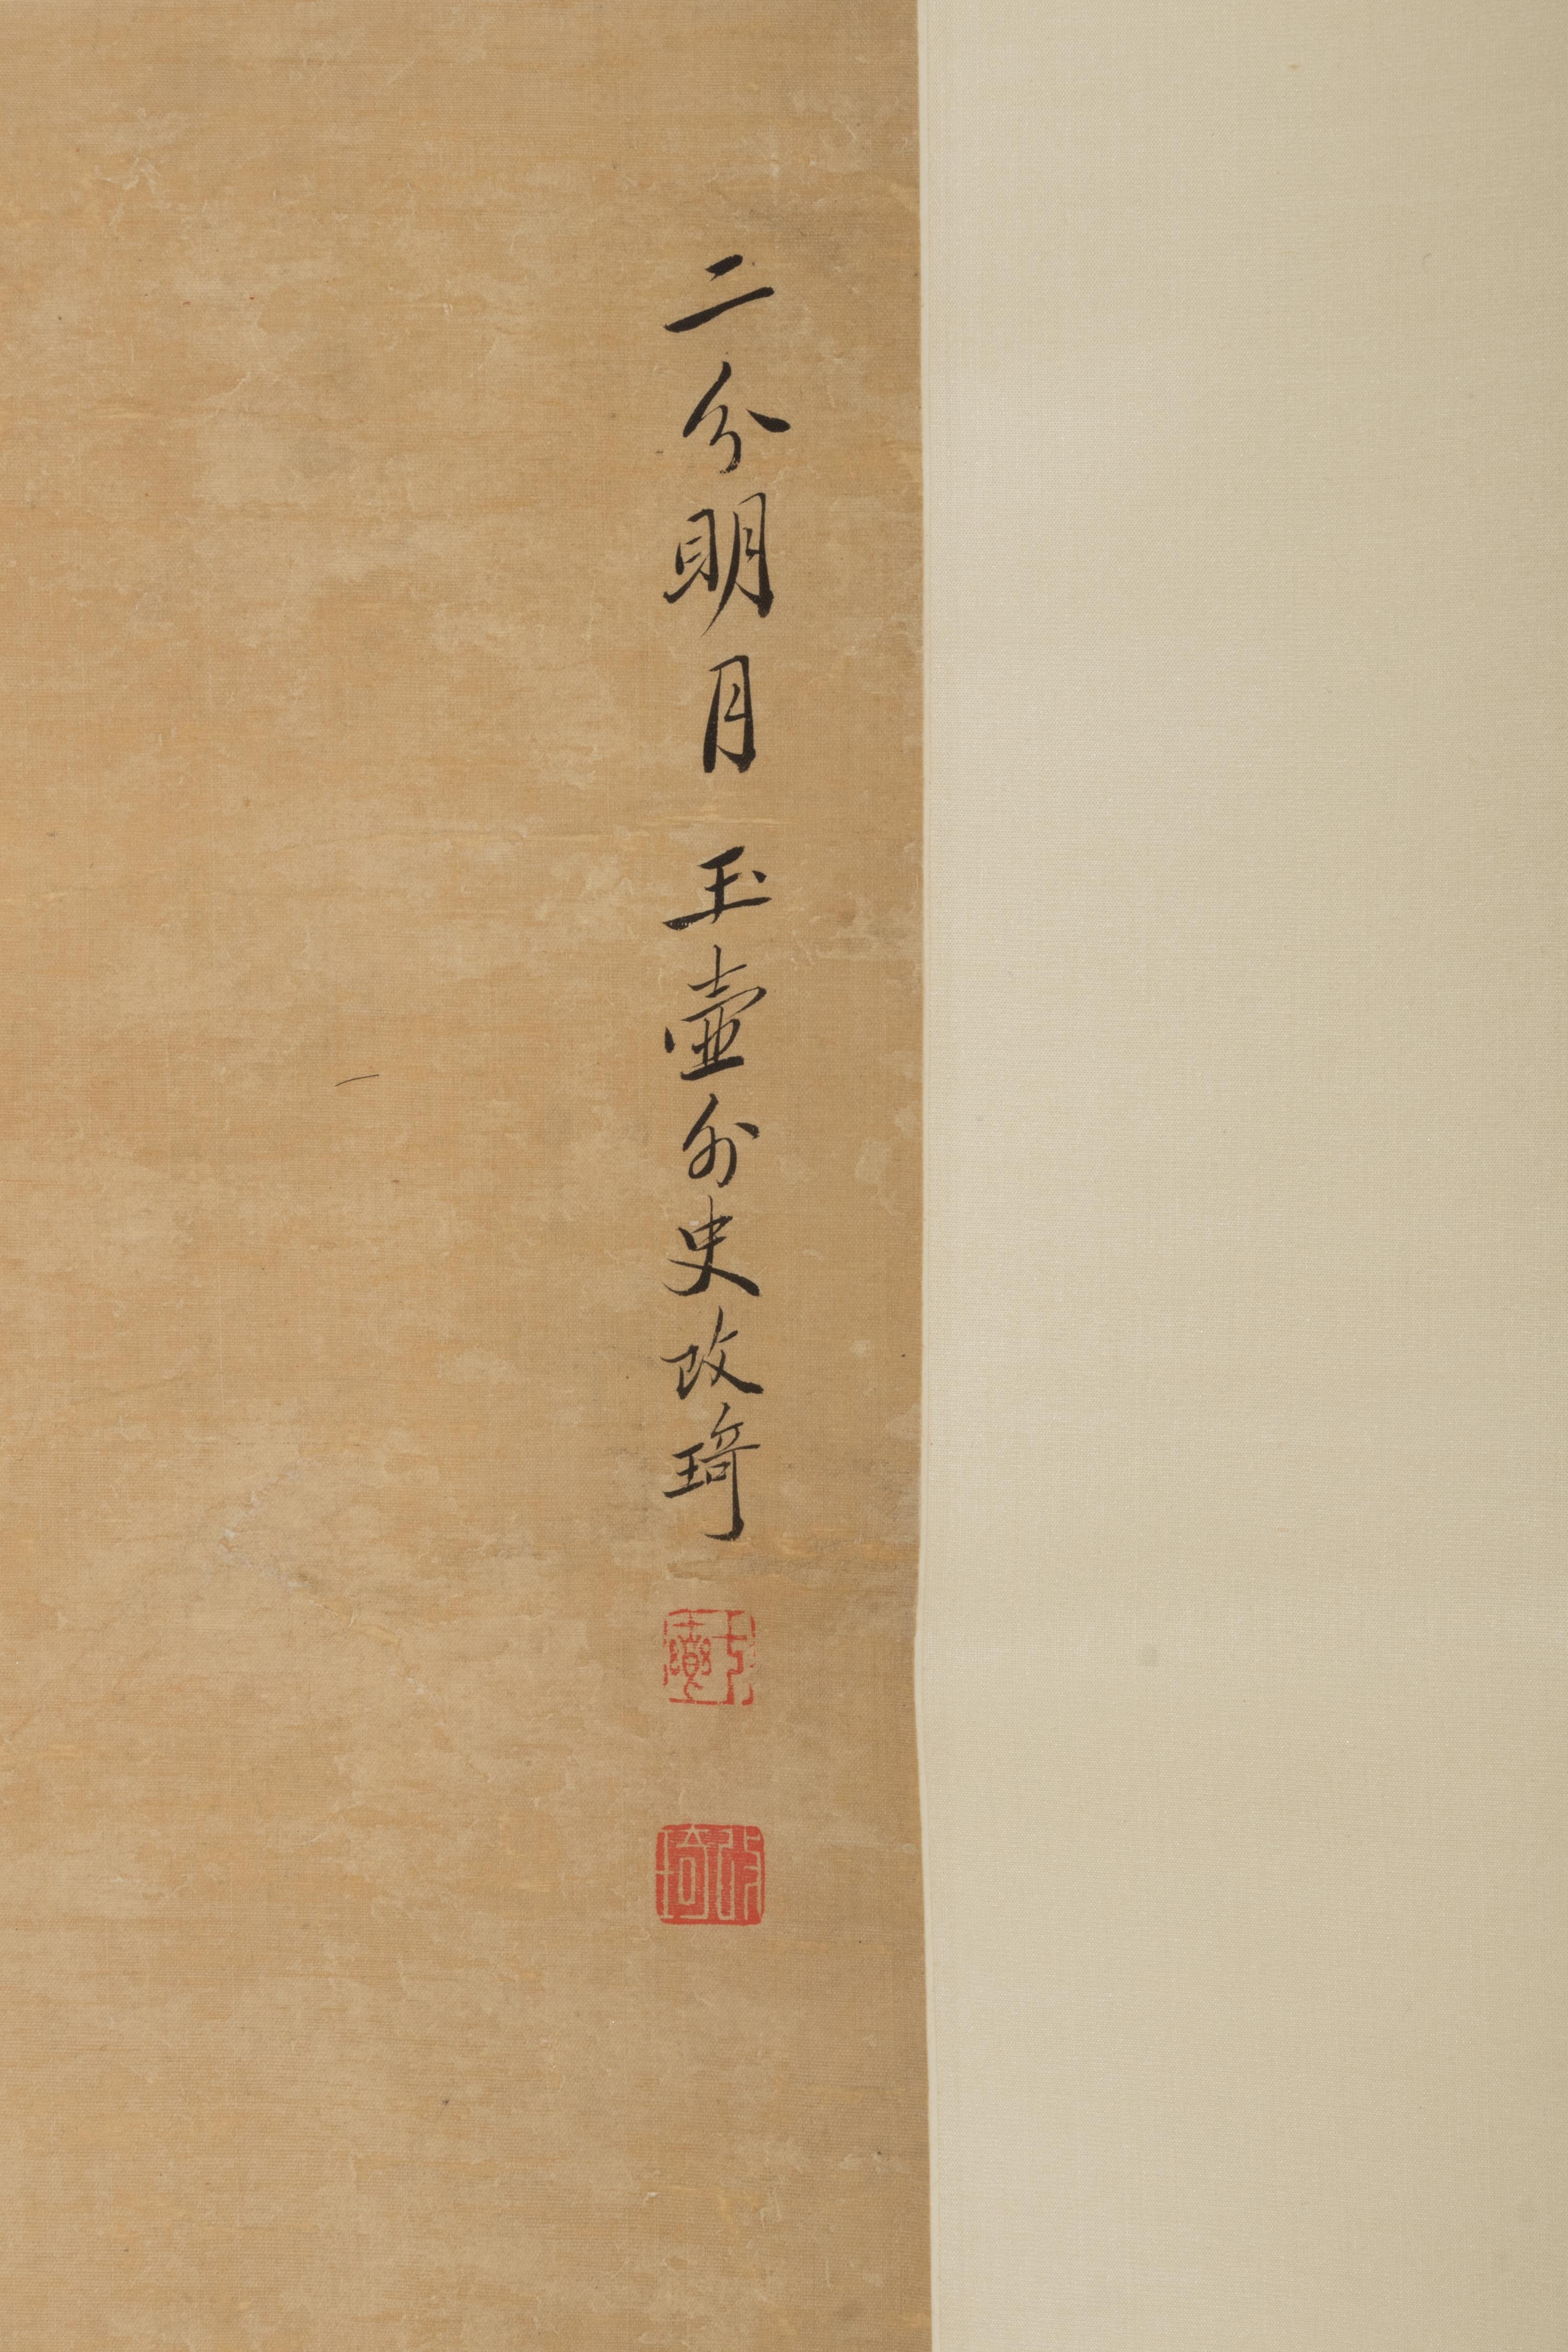 二分明月 玉壺外史改琦
改琦